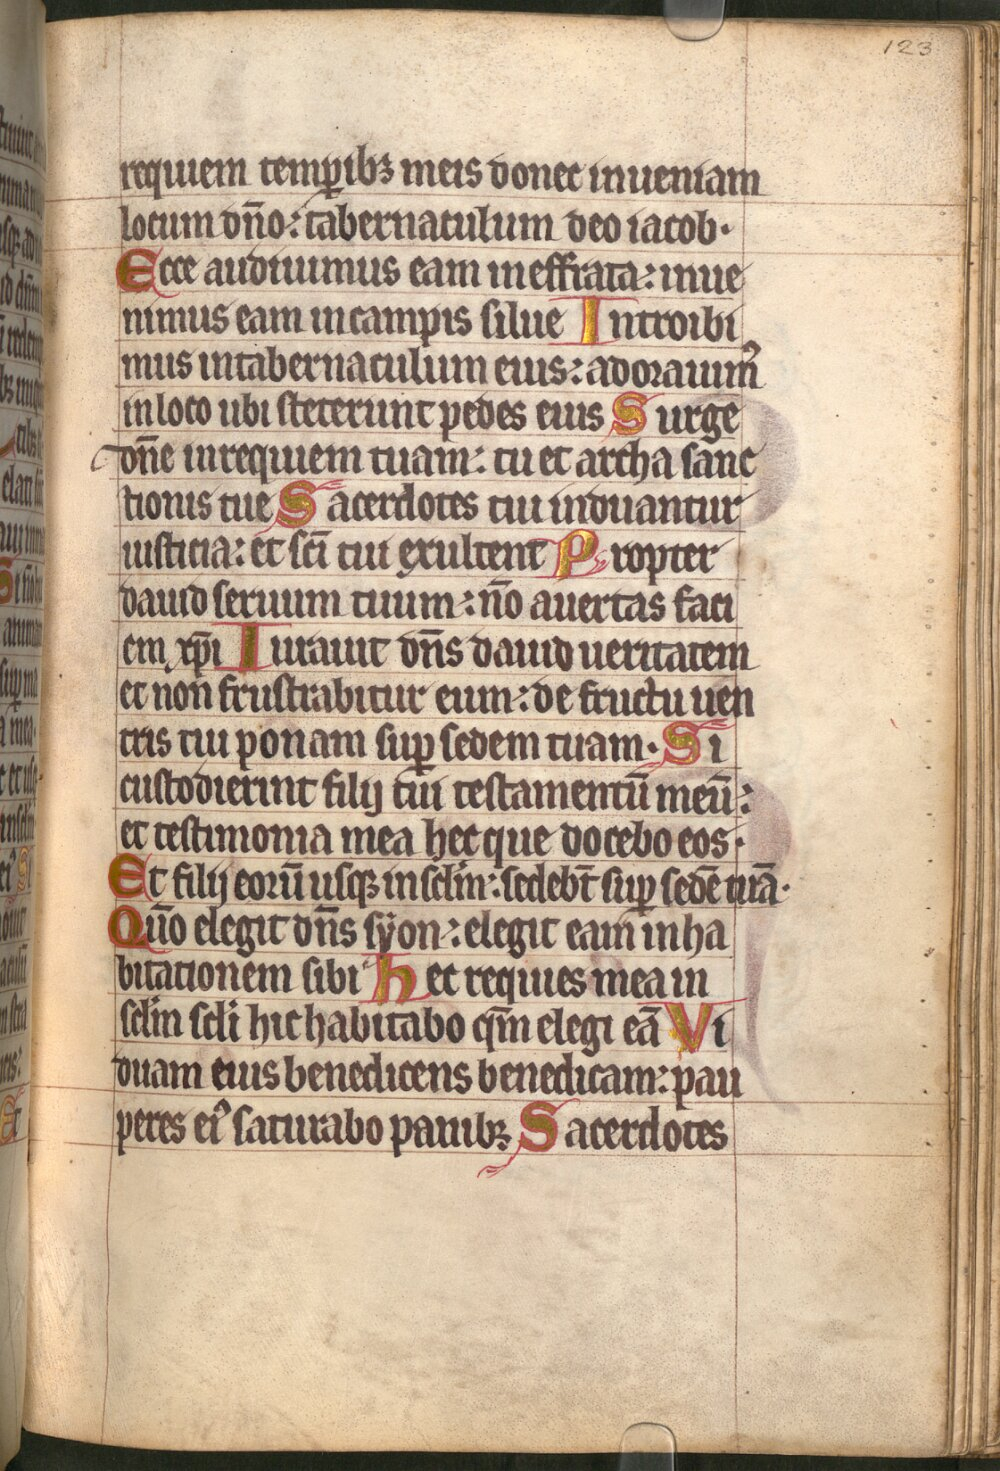 123
requiem temꝑibꝫ meis donec inueniam
locum dn̄o: tabernaculum deo iacob·
Ecce audiuimus eam in effrata: inue
nimus eam in campis silue Introibi
mus in tabernaculum eius: adorauim᷒
in loco ubi steterunt pedes eius Surge
dn̄e in requiem tuam: tu et archa sanc
tionis tue Sacerdotes tui induantur
iusticia: et sc̄i tui exultent Propter
dauid seruum tuum: nō auertas faci
em xp̄i Iurauit dn̄s dauid ueritatem
et non frustrabitur eum: de fructu uen
tris tui ponam suꝑ sedem tuam· Si
custodierint filij tui testamentū meū:
et testimonia mea hec que docebo eos·
Et filij eorū usqꝫ in sc̄lm: sedebt̄ suꝑ sedē tuā·
Qm̄o elegit dn̄s syon: elegit eam in ha
bitationem sibi Hec requies mea in
sc̄lm sc̄li hic habitabo qm̄ elegi eā Vi
duam eius benedicens benedicam: pau
peres ei᷒ saturabo panibꝫ Sacerdotes